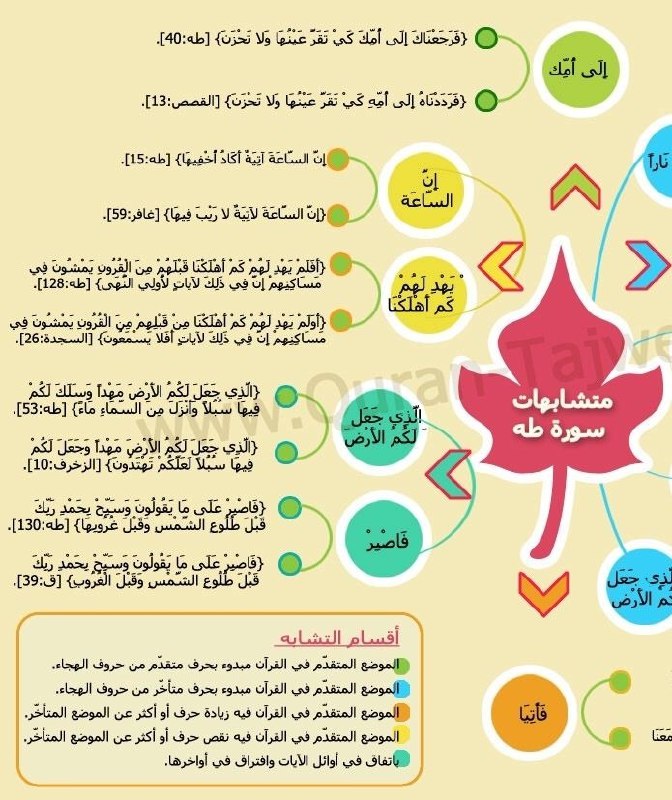 إِلَى أُمِّكَ
{فَرَجَعْنَاكَ إِلَى أُمِّكَ كَيْ تَقَرَّ عَيْنُهَا وَلَا تَحْزَنَ} [طه:40].
{فَرَدَدْنَاهُ إِلَى أُمِّهِ كَيْ تَقَرَّ عَيْنُهَا وَلَا تَحْزَنَ} [القصص:13].
نَاراً
إِنَّ
السَّاعَةَ
إِنَّ السَّاعَةَ آتِيَةٌ أَكَادُ أُخْفِيهَا} [طه:15].
{إِنَّ السَّاعَةَ لَآتِيَةٌ لَا رَيْبَ فِيهَا} [غافر:59].
يَهْدِ لَهُمْ
كَمْ أَهْلَكْنَا
{أَفَلَمْ يَهْدِ لَهُمْ كَمْ أَهْلَكْنَا قَبْلَهُمْ مِنَ الْقُرُونِ يَمْشُونَ فِي
مَسَاكِنِهِمْ إِنَّ فِي ذَلِكَ لَآيَاتٍ لِأُولِي النُّهَى} [طه:128].
{أَوَلَمْ يَهْدِ لَهُمْ كَمْ أَهْلَكْنَا مِنْ قَبْلِهِمْ مِنَ الْقُرُونِ يَمْشُونَ فِي
مَسَاكِنِهِمْ إِنَّ فِي ذَلِكَ لَآيَاتٍ أَفَلَا يَسْمَعُونَ} [السجدة:26].
متشابهات
سورة طه
الَّذِي جَعَلَ
لَكُمُ الْأَرْضَ
{الَّذِي جَعَلَ لَكُمُ الْأَرْضَ مَهْداً وَسَلَكَ لَكُمْ
فِيهَا سُبُلاً وَأَنْزَلَ مِنَ السَّمَاءِ مَاءً} [طه:53].
{الَّذِي جَعَلَ لَكُمُ الْأَرْضَ مَهْداً وَجَعَلَ لَكُمْ
فِيهَا سُبُلاً لَعَلَّكُمْ تَهْتَدُونَ} [الزخرف:10].
فَاصْبِرْ
{فَاصْبِرْ عَلَى مَا يَقُولُونَ وَسَبِّحْ بِحَمْدِ رَبِّكَ
قَبْلَ طُلُوعِ الشَّمْسِ وَقَبْلَ غُرُوبِهَا} [طه:130].
{فَاصْبِرْ عَلَى مَا يَقُولُونَ وَسَبِّحْ بِحَمْدِ رَبِّكَ
قَبْلَ طُلُوعِ الشَّمْسِ وَقَبْلَ الْغُرُوبِ} [ق:39].
الَّذِي جَعَلَ
لَكُمُ الْأَرْضَ
فَأْتِيَا
أقسام التشابه
الموضع المتقدّم في القرآن مبدوء بحرف متقدّم من حروف الهجاء.
الموضع المتقدّم في القرآن مبدوء بحرف متأخّر من حروف الهجاء.
الموضع المتقدّم في القرآن فيه زيادة حرف أو أكثر عن الموضع المتأخّر.
الموضع المتقدّم في القرآن فيه نقص حرف أو أكثر عن الموضع المتأخّر.
باتفاق في أوائل الآيات وافتراق في أواخرها.
www.Quran-Tajwe